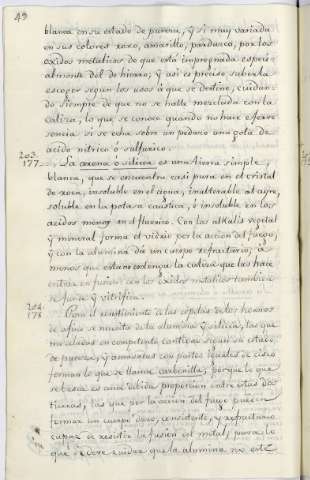 49
blanca en su estado de pureza, y si muy variada
en sus colores roxo, amarillo, pardusco, por los
oxidos metalicos de que está impregnada especi-
almente del de hierro; y asi es preciso saberla
escoger segun los usos á que se destine, cuidan-
do siempre de que no se halle mezclada con la
caliza, lo que se conoce quando no hace eferve
sencia si se echa sobre un pedazo una gota de
acido nitrico ó sulfurico.
203
177 La arena ó silicea es una tierra simple,
blanca, que se encuentra casi pura en el cristal
de roca, insoluble en el agua, inalterable al ayre,
soluble en la potasa caustica, é insoluble en los
acidos menos en el fluorico. Con los alkalis vegetal
y mineral forma el vidrio por la accion del fuego,
y con la alumina dá un cuerpo refractario, á
menos que esta no contenga la caliza que las hace
entrar en fusion: con los oxidos metalicos tambien
se funde y vitrifica.
204
178 Para el revestimiento de las copelas de los hornos
de afino se necesita de la alumina y silicea, las que
mezcladas en competente cantidad segun su estado
de pureza, y amasadas con partes iguales de cisco
forman lo que se llama carbonilla; porque lo que
se busca es una debida proporcion entre estas dos
tierras, las que por la accion del fuego pueden
formar un cuerpo duro, consistente, y refractario
capaz de resistir la fusion del metal; para lo
que se debe cuidar que la alumina no esté